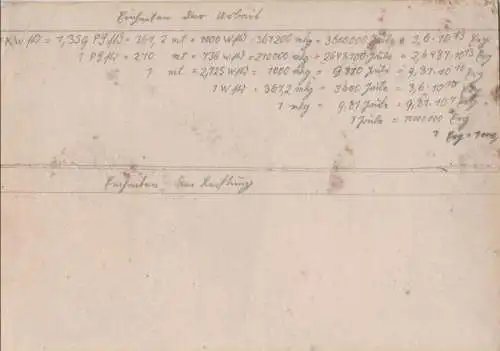 Einheiten der Arbeit
1 KWfh = 1,359 PSfh = 367,2 mt = 1000 Wfh = 367200 mkg = 3600000 Joule = 3,6·10¹³ Erg
1 PSfh = 270 mt = 736 Wfh = 270000 mkg = 2648700 Joule = 2,6487·10¹³ Erg
1 mt = 2,725 Wfh = 1000 mkg = 9810 Joule = 9,81·10¹⁰ Erg
1 Wfh = 367,2 mkg = 3600 Joule = 3,6·10¹⁰ Erg
1 mkg = 9,81 Joule = 9,81·10⁷ Erg
1 Joule = 10000000 Erg
1 Erg =
Einheiten der Leistung